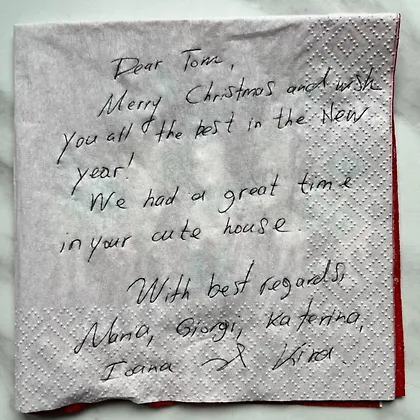 Dear Tom,
Merry Christmas and wish
you all the best in the New
year!
We had a great time
in your cute house.
With best regards,
Nana, Giorgi, Katerina,
Ioana & Kira.